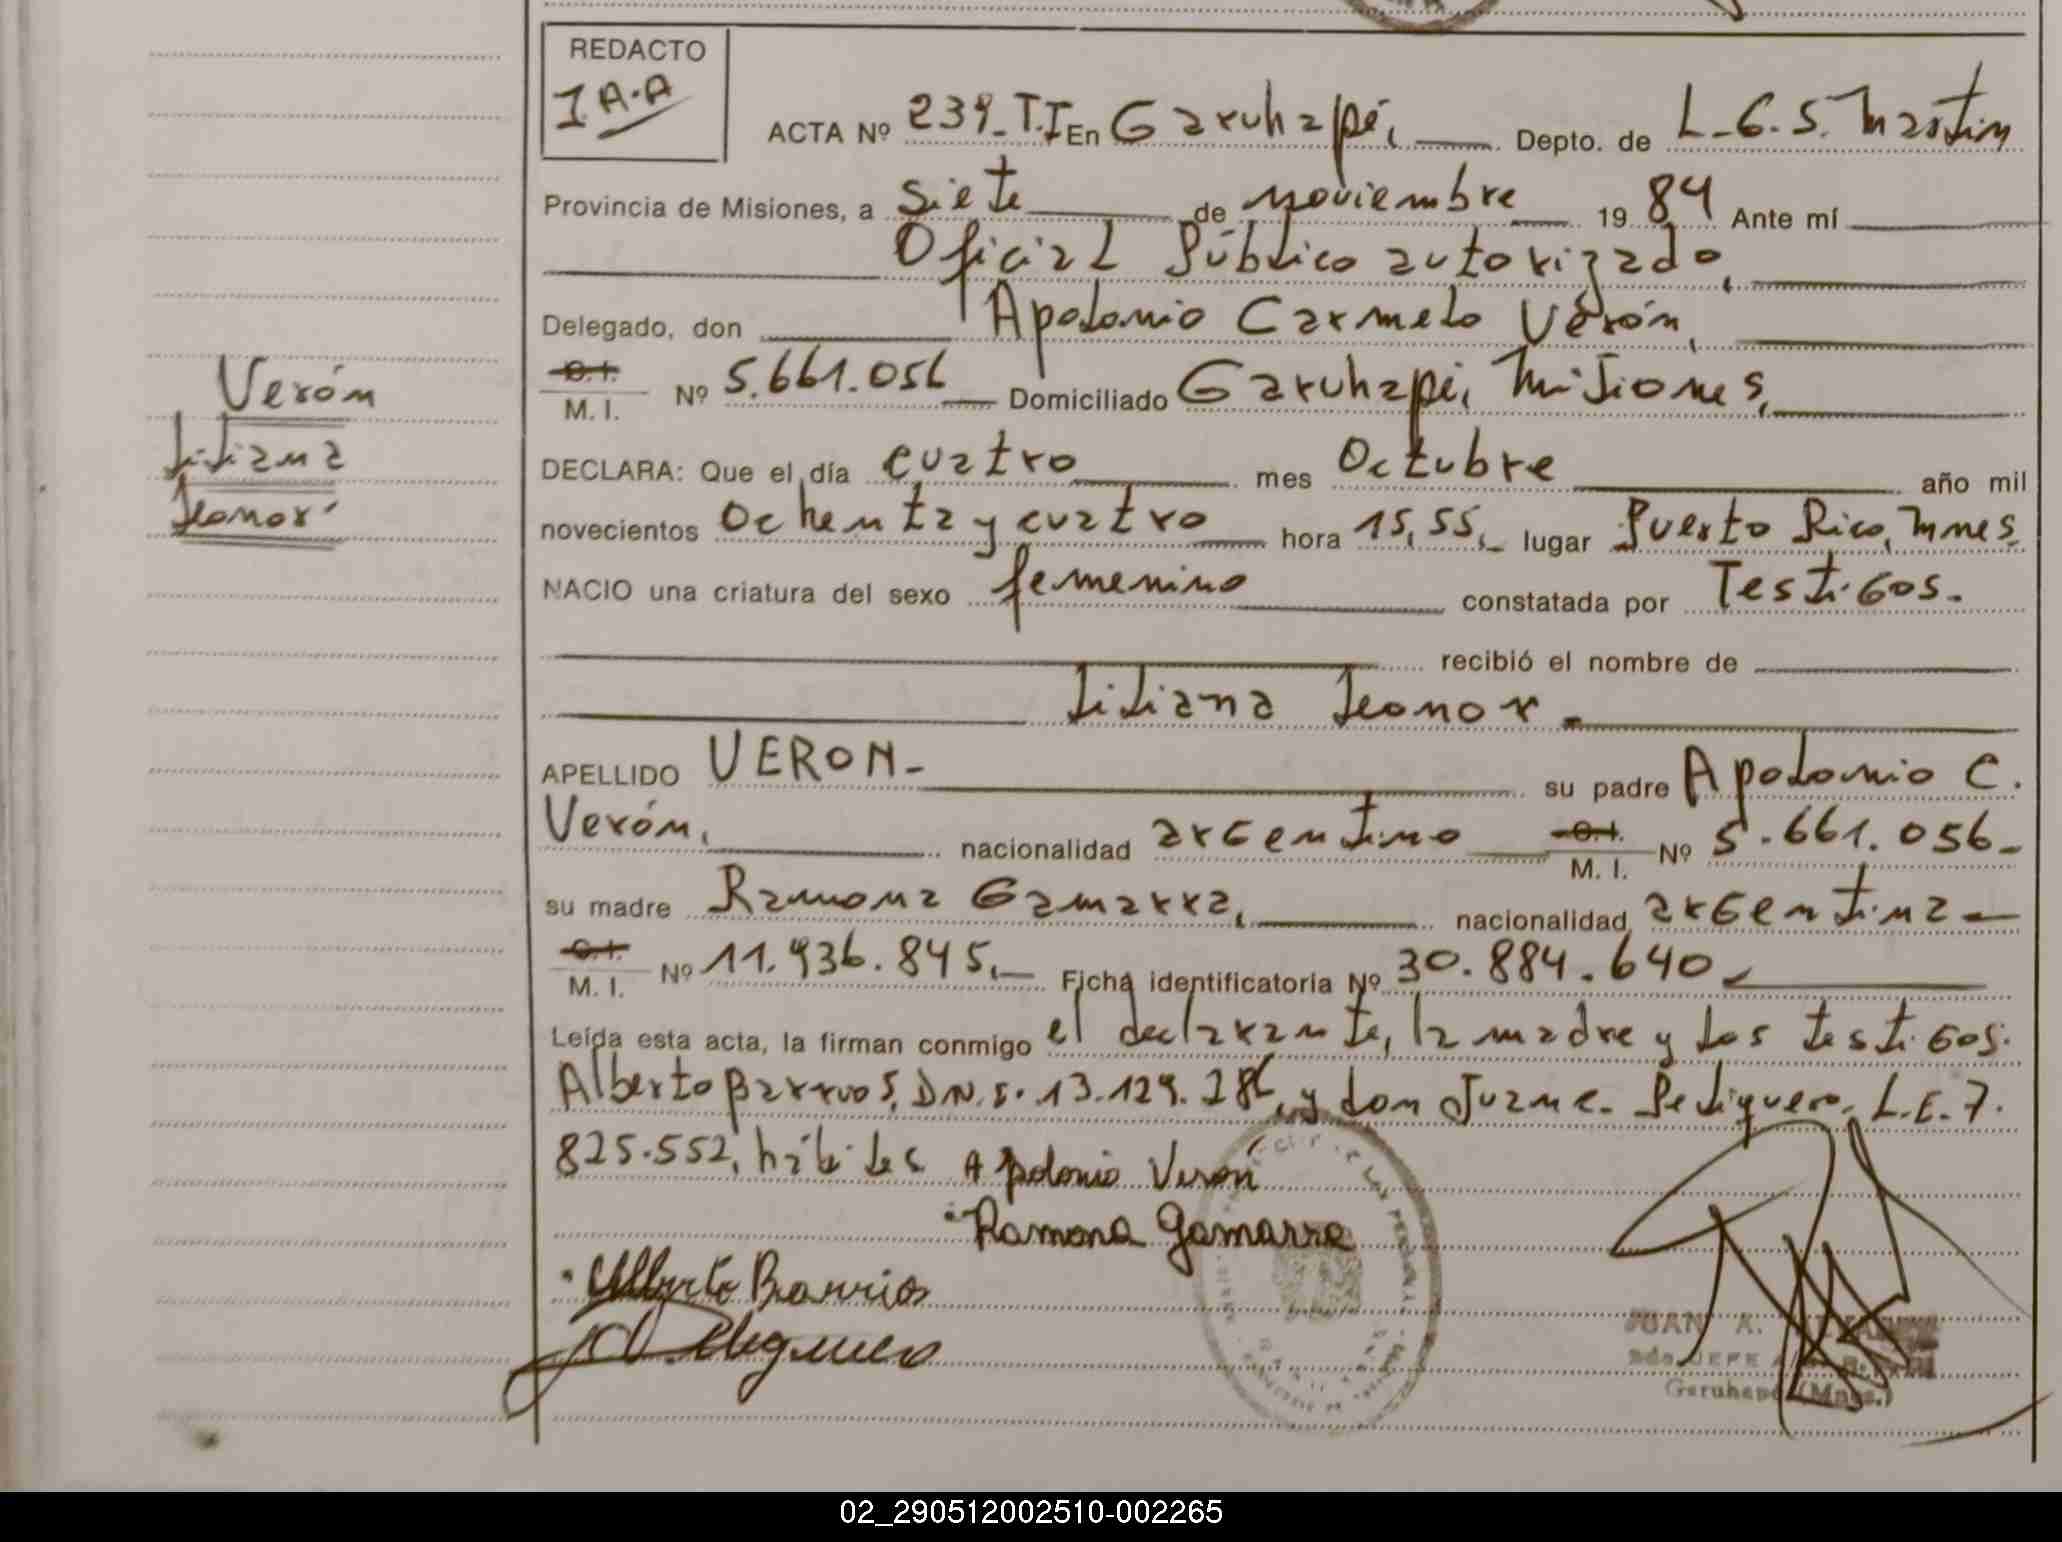 REDACTO
I A.A
ACTA Nº 239_T.I En Garuhapé, Depto. de L.G.S. Martin
Provincia de Misiones, a siete de noviembre 19 84 Ante mí
Oficial Público autorizado,
Delegado, don Apolonio Carmelo Verón,
C.I. M. I. Nº 5.661.056 Domiciliado Garuhapé, Misiones,
DECLARA: Que el día cuatro mes Octubre año mil
novecientos Ochenta y cuatro hora 15,55, lugar Puerto Rico, Mnes.
NACIO una criatura del sexo femenino constatada por Testigos.
recibió el nombre de
Liliana Leonor.
APELLIDO VERON_ su padre Apolonio C.
Verón, nacionalidad argentino C.I. M. I. Nº 5.661.056_
su madre Ramona Gamarra, nacionalidad argentina
C.I. M. I. Nº 11.936.845, Ficha identificatoria Nº 30.884.640
Leída esta acta, la firman conmigo el declarante, la madre y los testigos:
Alberto Barrios, D.N.I. 13.129. y don Juan C. L.E. 7.
825.552, hábiles Apolonio Verón
Ramona Gamarra
Alberto Barrios
Verón
Liliana
Leonor
JUAN A.
JEFE
Garuhapé (Mnes.)
02_290512002510-002265